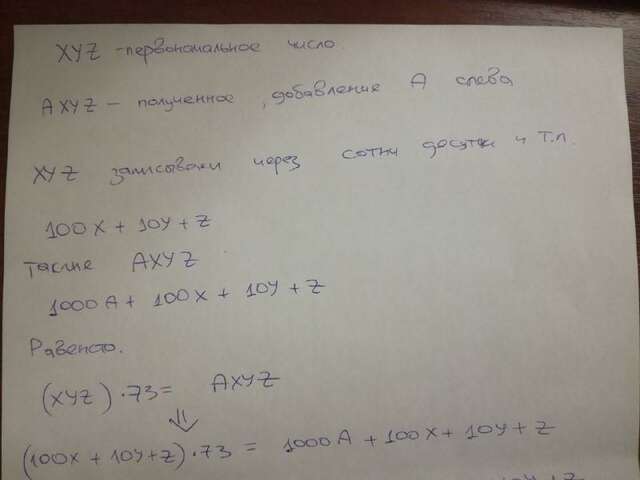 XYZ - первоночальное число.
AXYZ - полученное, добавление A слева
XYZ записываем через сотни десятки и т.п.
100X + 10Y + Z
также AXYZ
1000A + 100X + 10Y + Z
Равенство.
(XYZ) · 73 = AXYZ
⇓
(100X + 10Y + Z) · 73 = 1000A + 100X + 10Y + Z